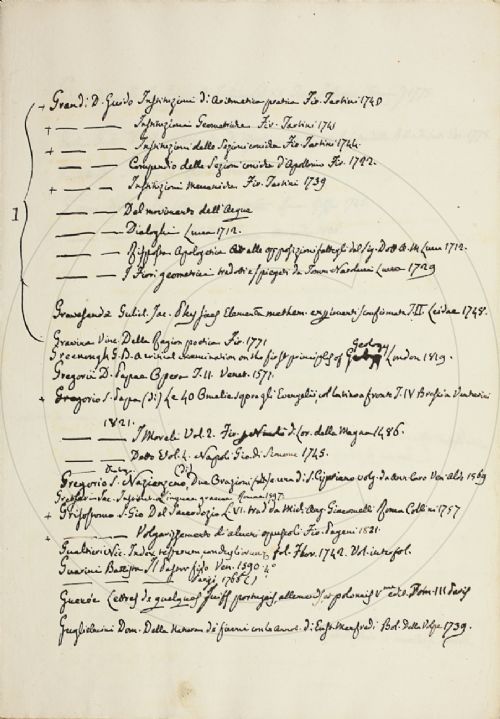 + Grandi D. Guido Instituzioni di Aritmetica pratica Fir. Tartini 1740
+ — — Instituzioni Geometriche Fir. Tartini 1741
+ — — Instituzioni delle Sezioni coniche Fir. Tartini 1744.
— — Compendio delle Sezioni coniche d'Apollonio Fir. 1722.
+ — — Instituzioni Meccaniche Fir. Tartini 1739
1 — — Del movimento dell'Acque
— — Dialoghi Lucca 1712.
— — Risposta Apologetica alle opposizioni fattegli dal Sig. Dott. A. M. Lucca 1712.
— — I Fiori geometrici tradotti e spiegati da Tomm. Narducci Lucca 1729
Gravesande Gulil. Jac. Physices Elementa mathem. experimentis confirmata T. II Leidae 1748.
Gravina Vinc. Della Ragion poetica Fir. 1771
Greenough G. B. A critical examination on the first principles of Geology London 1819.
Gregorii D. Papae Opera T. II. Venet. 1571.
+ Gregorio S. Papa (di) Le 40 Omelie sopra gli Evangelii, col latino a fronte T. IV Brescia Venturini
1821.
— — I Morali Vol. 2. Fir. per Niccolò di Lor. della Magna 1486.
— — Detto Vol. 4. Napoli Gio di Simone 1745.
Gregorio S. Nazianzeno, (di) Due Orazioni, e di S. Cipriano volg. da Ann. Caro Ven. Aldo 1569
Romae 1597.
+ Grisostomo S. Gio Del Sacerdozio L. VI. trad. da Mich. Ang. Giacomelli Roma Collini 1757
+ — — Volgarizzamento di alcuni oppuscoli Fir. Pagani 1821.
Gualtieri Nic. Index Testarum conchyliorum fol. Flor. 1742. Vol. in 1 fol.
Guarini Battista Il Pastor fido Ven. 1590 4°
Parigi 1768
Guenée Lettres de quelques Juifs portugais, allemands, et polonais Tom. III Paris
Guglielmini Dom. Della Natura de' fiumi con le annot. di Eust. Manfredi Bol. Della Volpe 1739.